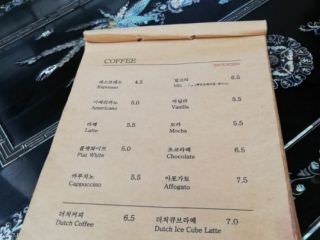 COFFEE
에스프레소 4.5
Espresso
아메리카노 5.0
Americano
라떼 5.5
Latte
플랫화이트 5.0
Flat White
카푸치노 5.5
Cappuccino
더치커피 6.5
Dutch Coffee
6.5
바닐라 5.5
Vanilla
모카 5.5
Mocha
초코라떼 6.5
Chocolate
아포가토 7.5
Affogato
더치큐브라떼 7.0
Dutch Ice Cube Latte